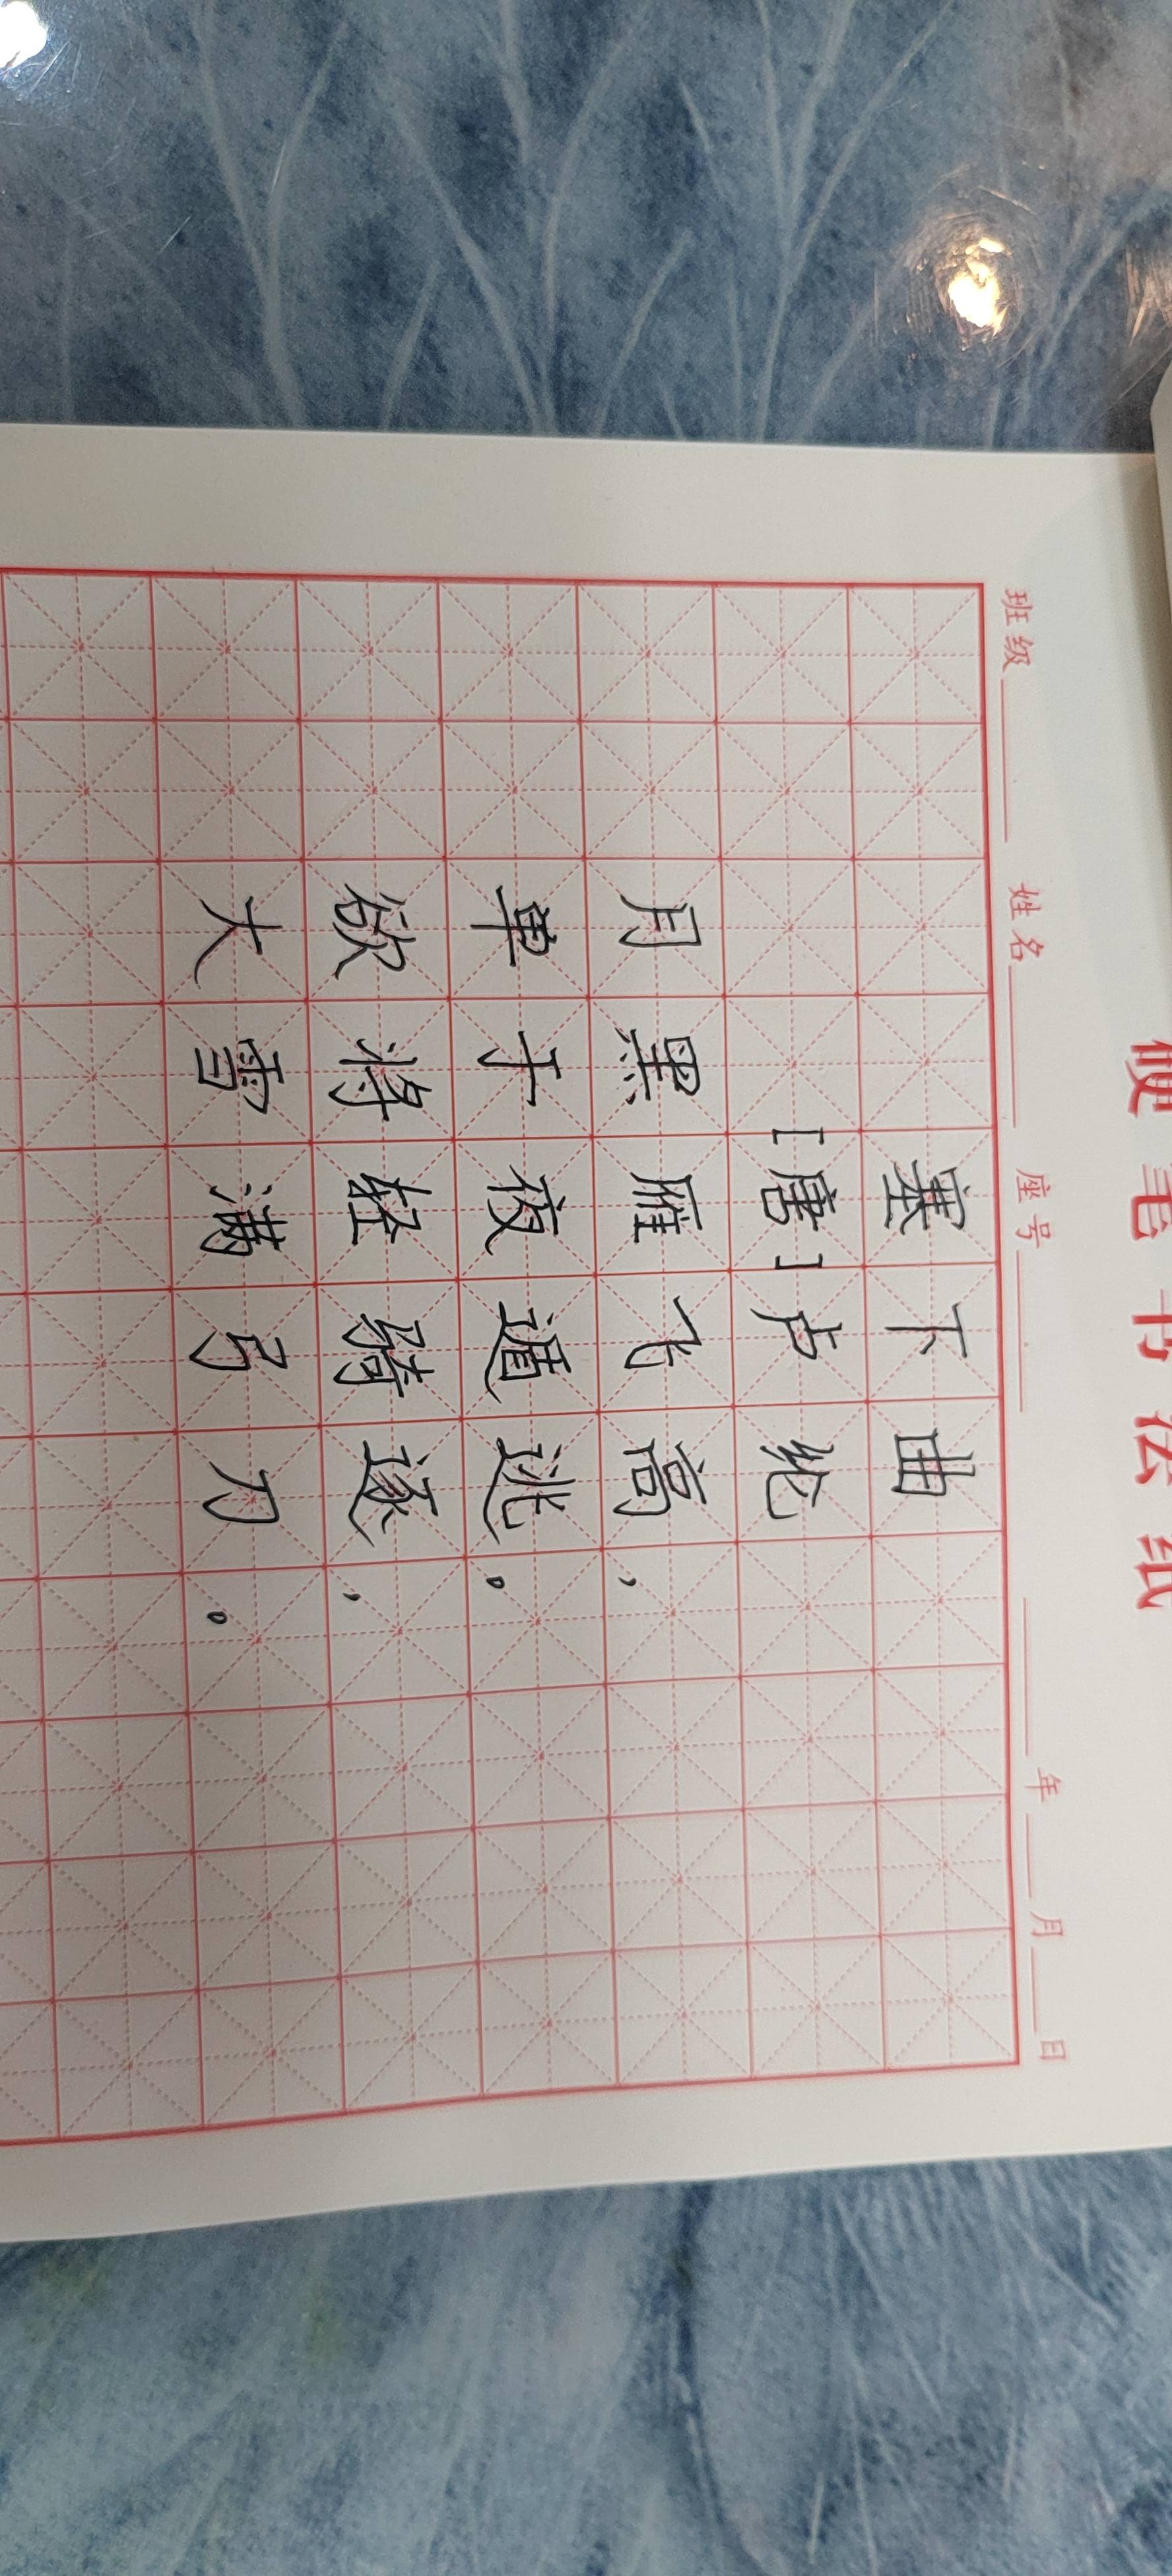 硬笔书法纸
班级 姓名 座号 年 月 日
塞下曲
[唐]卢纶
月黑雁飞高，
单于夜遁逃。
欲将轻骑逐，
大雪满弓刀。